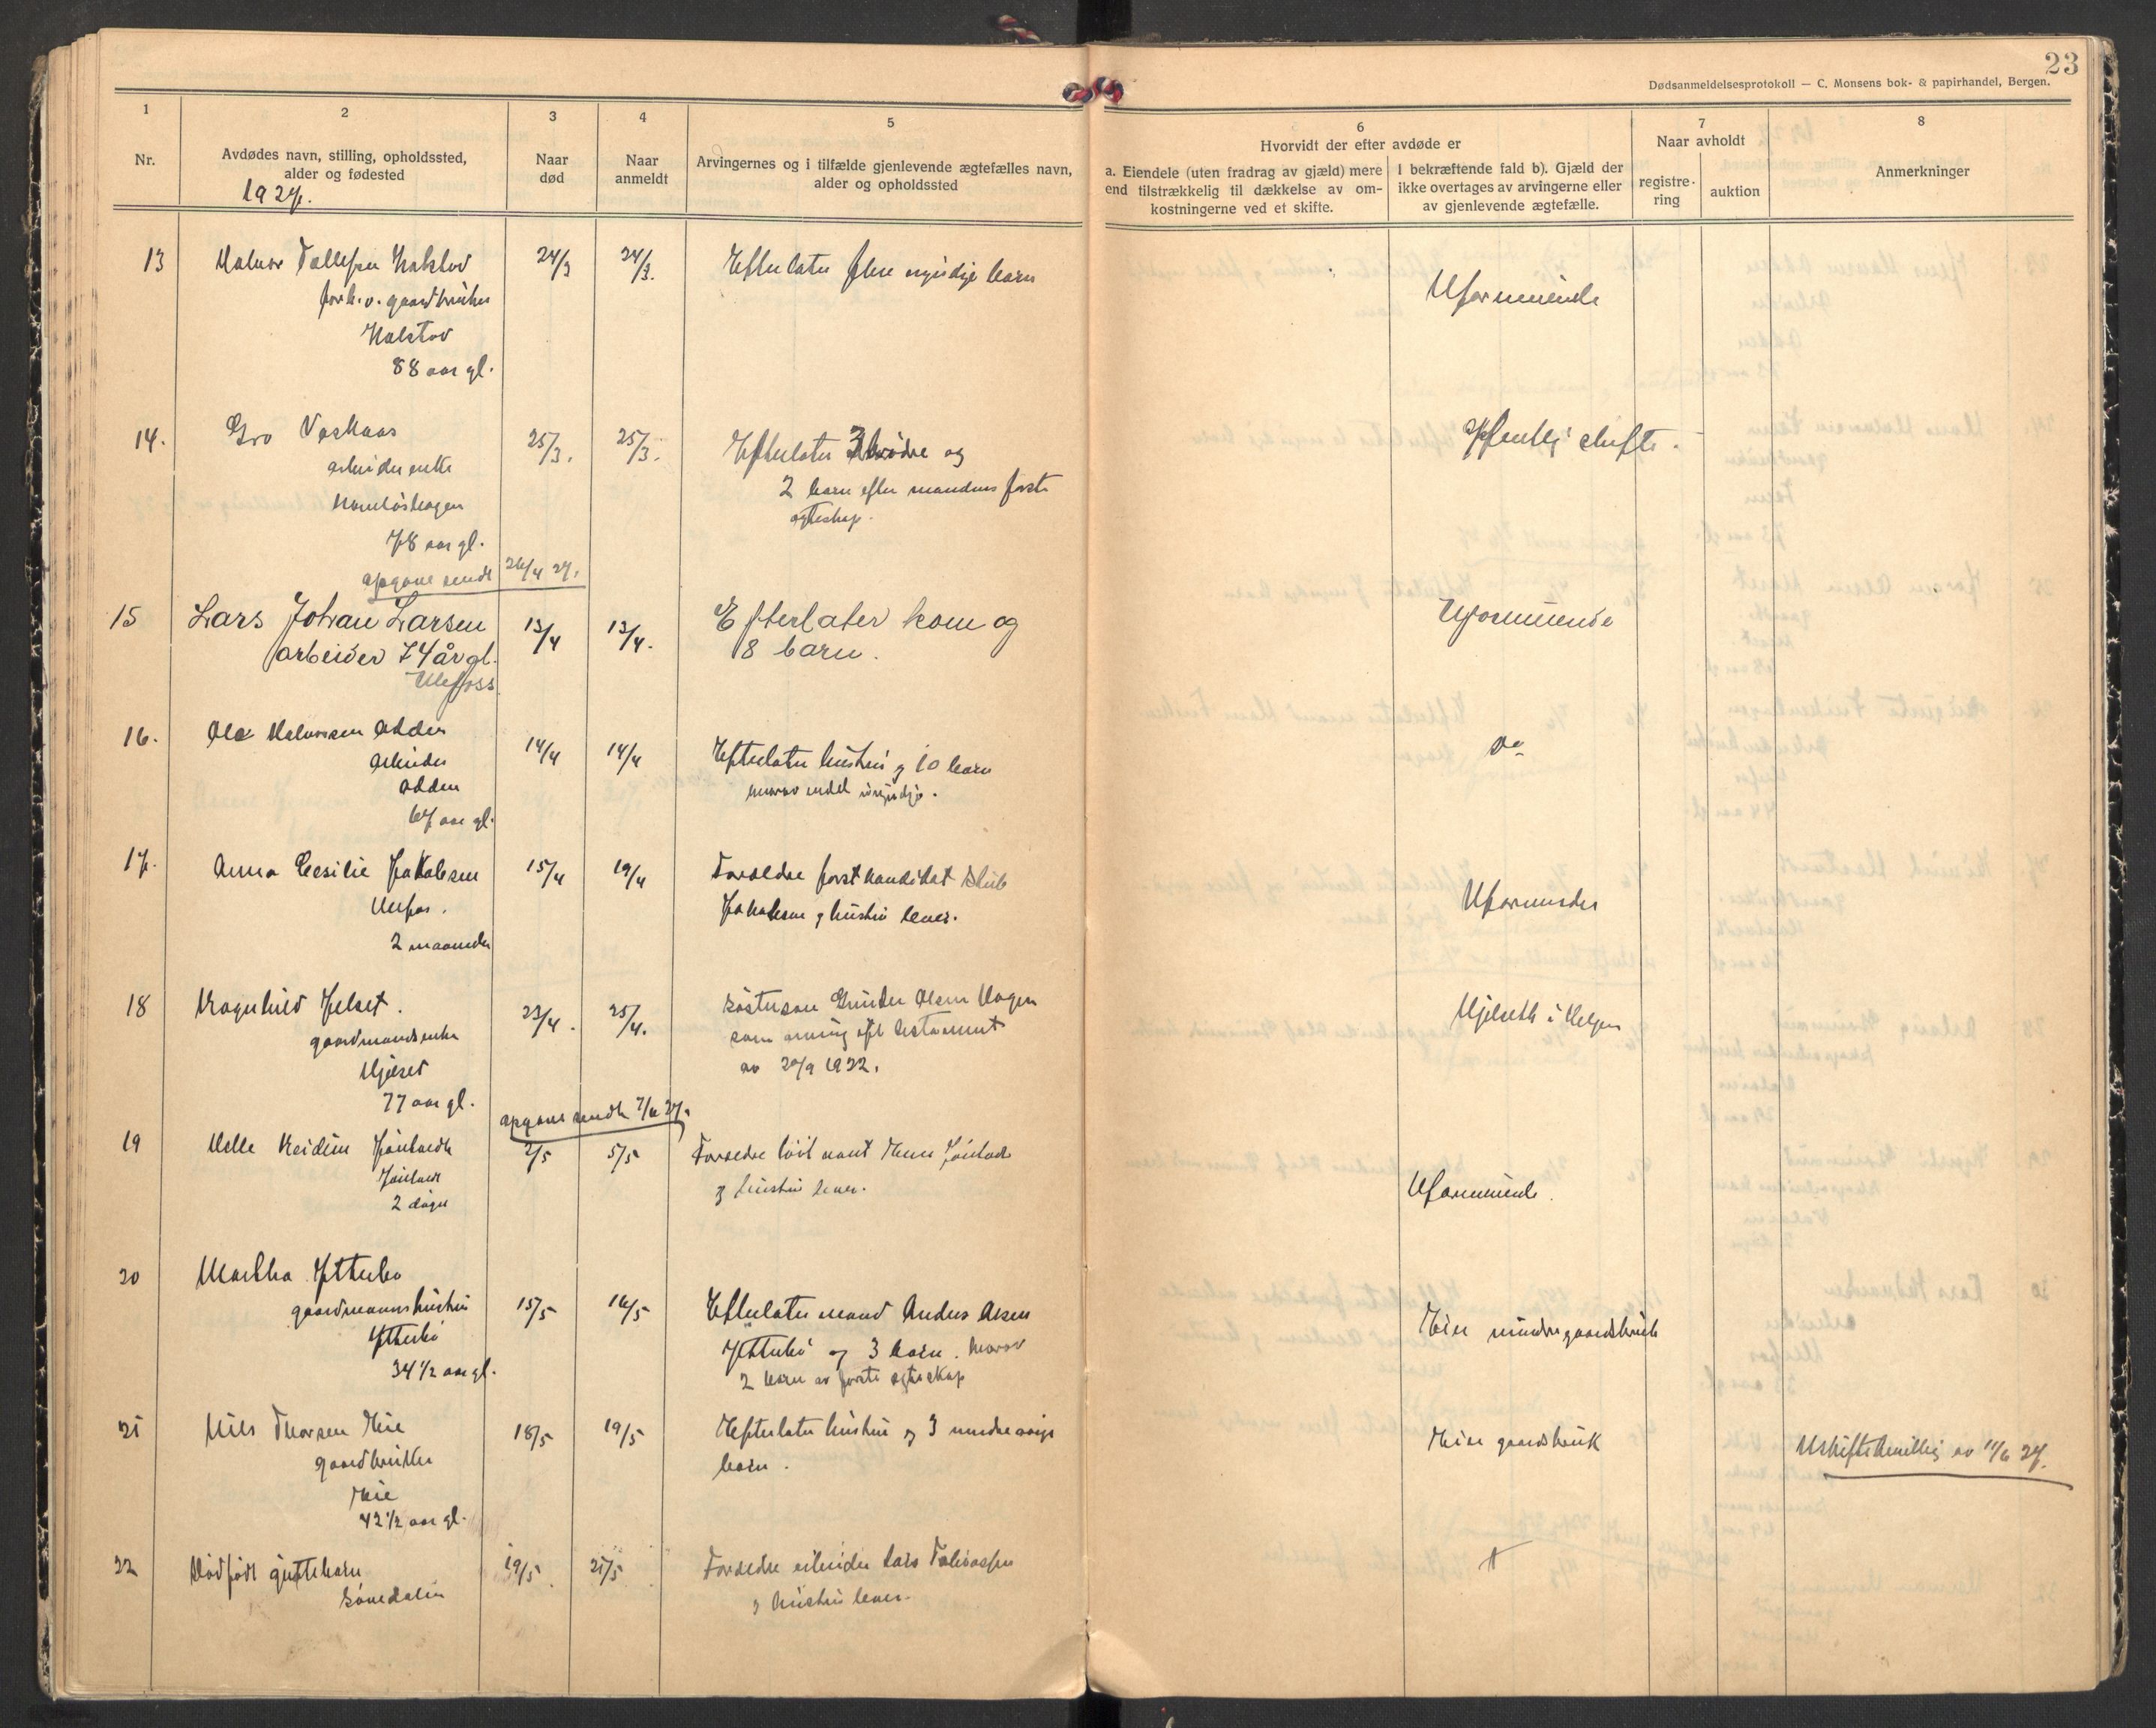 23
Dødsanmeldelsesprotokoll — C. Monsens bok- & papirhandel, Bergen.
1
2
3
4
5
6
7
8
Nr.
Avdødes navn, stilling, opholdssted,
alder og fødested
1927.
Naar
død
Naar
anmeldt
Arvingernes og i tilfælde gjenlevende ægtefælles navn,
alder og opholdssted
Hvorvidt der efter avdøde er
a. Eiendele (uten fradrag av gjæld) mere
end tilstrækkelig til dækkelse av om-
kostningerne ved et skifte.
I bekræftende fald b). Gjæld der
ikke overtages av arvingerne eller
av gjenlevende ægtefælle.
Naar avholdt
registre-
ring
auktion
Anmerkninger
13 Halvor Tollefsen 24/3 24/3 Efterlater flere myndige barn
forh.v. gaardbruker
88 aar gl.
Uformuende
14. Gro 25/3. 25/3. Efterlater 3 brødre og
arbeiderenke 2 barn efter mandens første
egteskap.
78 aar gl.
opgave sendt 26/4 27.
Offentlig skifte.
15 Lars Johan Larsen 13/4 13/4. Efterlater kone og
arbeider 74 år gl. 8 barn.
Ulefoss
Uformuende
16. Ole Halvorsen Odden 14/4 14/4 Efterlater hustru og 10 barn
arbeider hvorav endel umyndige.
Odden
67 aar gl.
Do
17. Anna Cesilie Jakobsen 15/4 19/4 Foreldre forstkandidat
Ulefos. Jakobsen og hustru lever.
2 maaneder
Uformuende
18 Ragnhild Jelset. 23/4. 25/4. Søstersøn Gunder Olsen Hagen
gaardmandsenke som arving eft testament
Hjelset av 20/9 1922.
77 aar gl.
opgave sendt 7/6 27.
Hjelseth i Helgen
19 Helle 2/5 5/5 Foreldre
og hustru lever.
2 døgn
Uformuende.
20 Martha Ytterbø
gaardmanns hustru 15/5 16/5 Efterlater mand Anders Olsen
Ytterbø Ytterbø og 3 barn. hvorav
34 1/2 aar gl. 2 barn av første egteskap
Eier mindre gaardsbruk
21 Nils Thorsen Eie 18/5 19/5 Efterlater hustru og 3 mindreaarige
gaardbruker barn.
Eie
42 1/2 aar gl.
Eier gaardsbruk
Uskiftebevilling av 11/6 27.
22 Dødfødt guttebarn 19/5. 21/5 Foreldre arbeider Lars Tolleossen
og hustru lever.